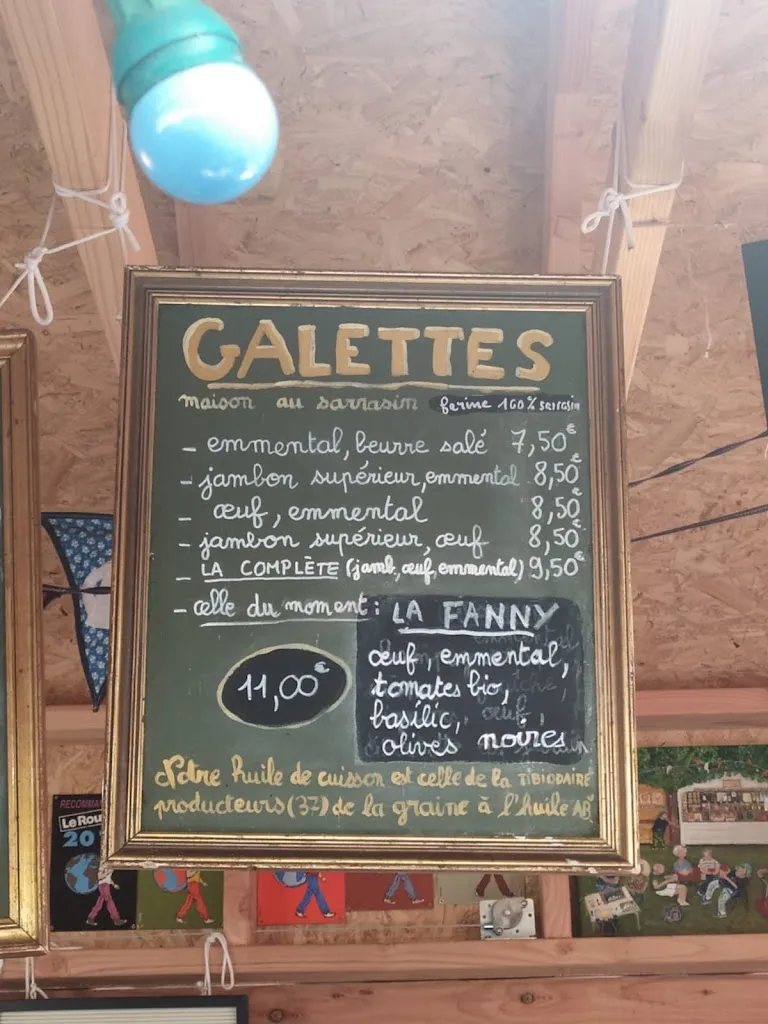 GALETTES
maison au sarrasin farine 100% sarrasin
- emmental, beurre salé 7,50€
- jambon supérieur, emmental 8,50€
- œuf, emmental 8,50€
- jambon supérieur, œuf 8,50€
- LA COMPLÈTE (jamb, œuf, emmental) 9,50€
- celle du moment : LA FANNY
œuf, emmental,
11,00€ tomates bio,
basilic,
olives noires
Notre huile de cuisson est celle de la
producteurs (37) de la graine à l'huile AB
RECOMMA
Le Rou
20